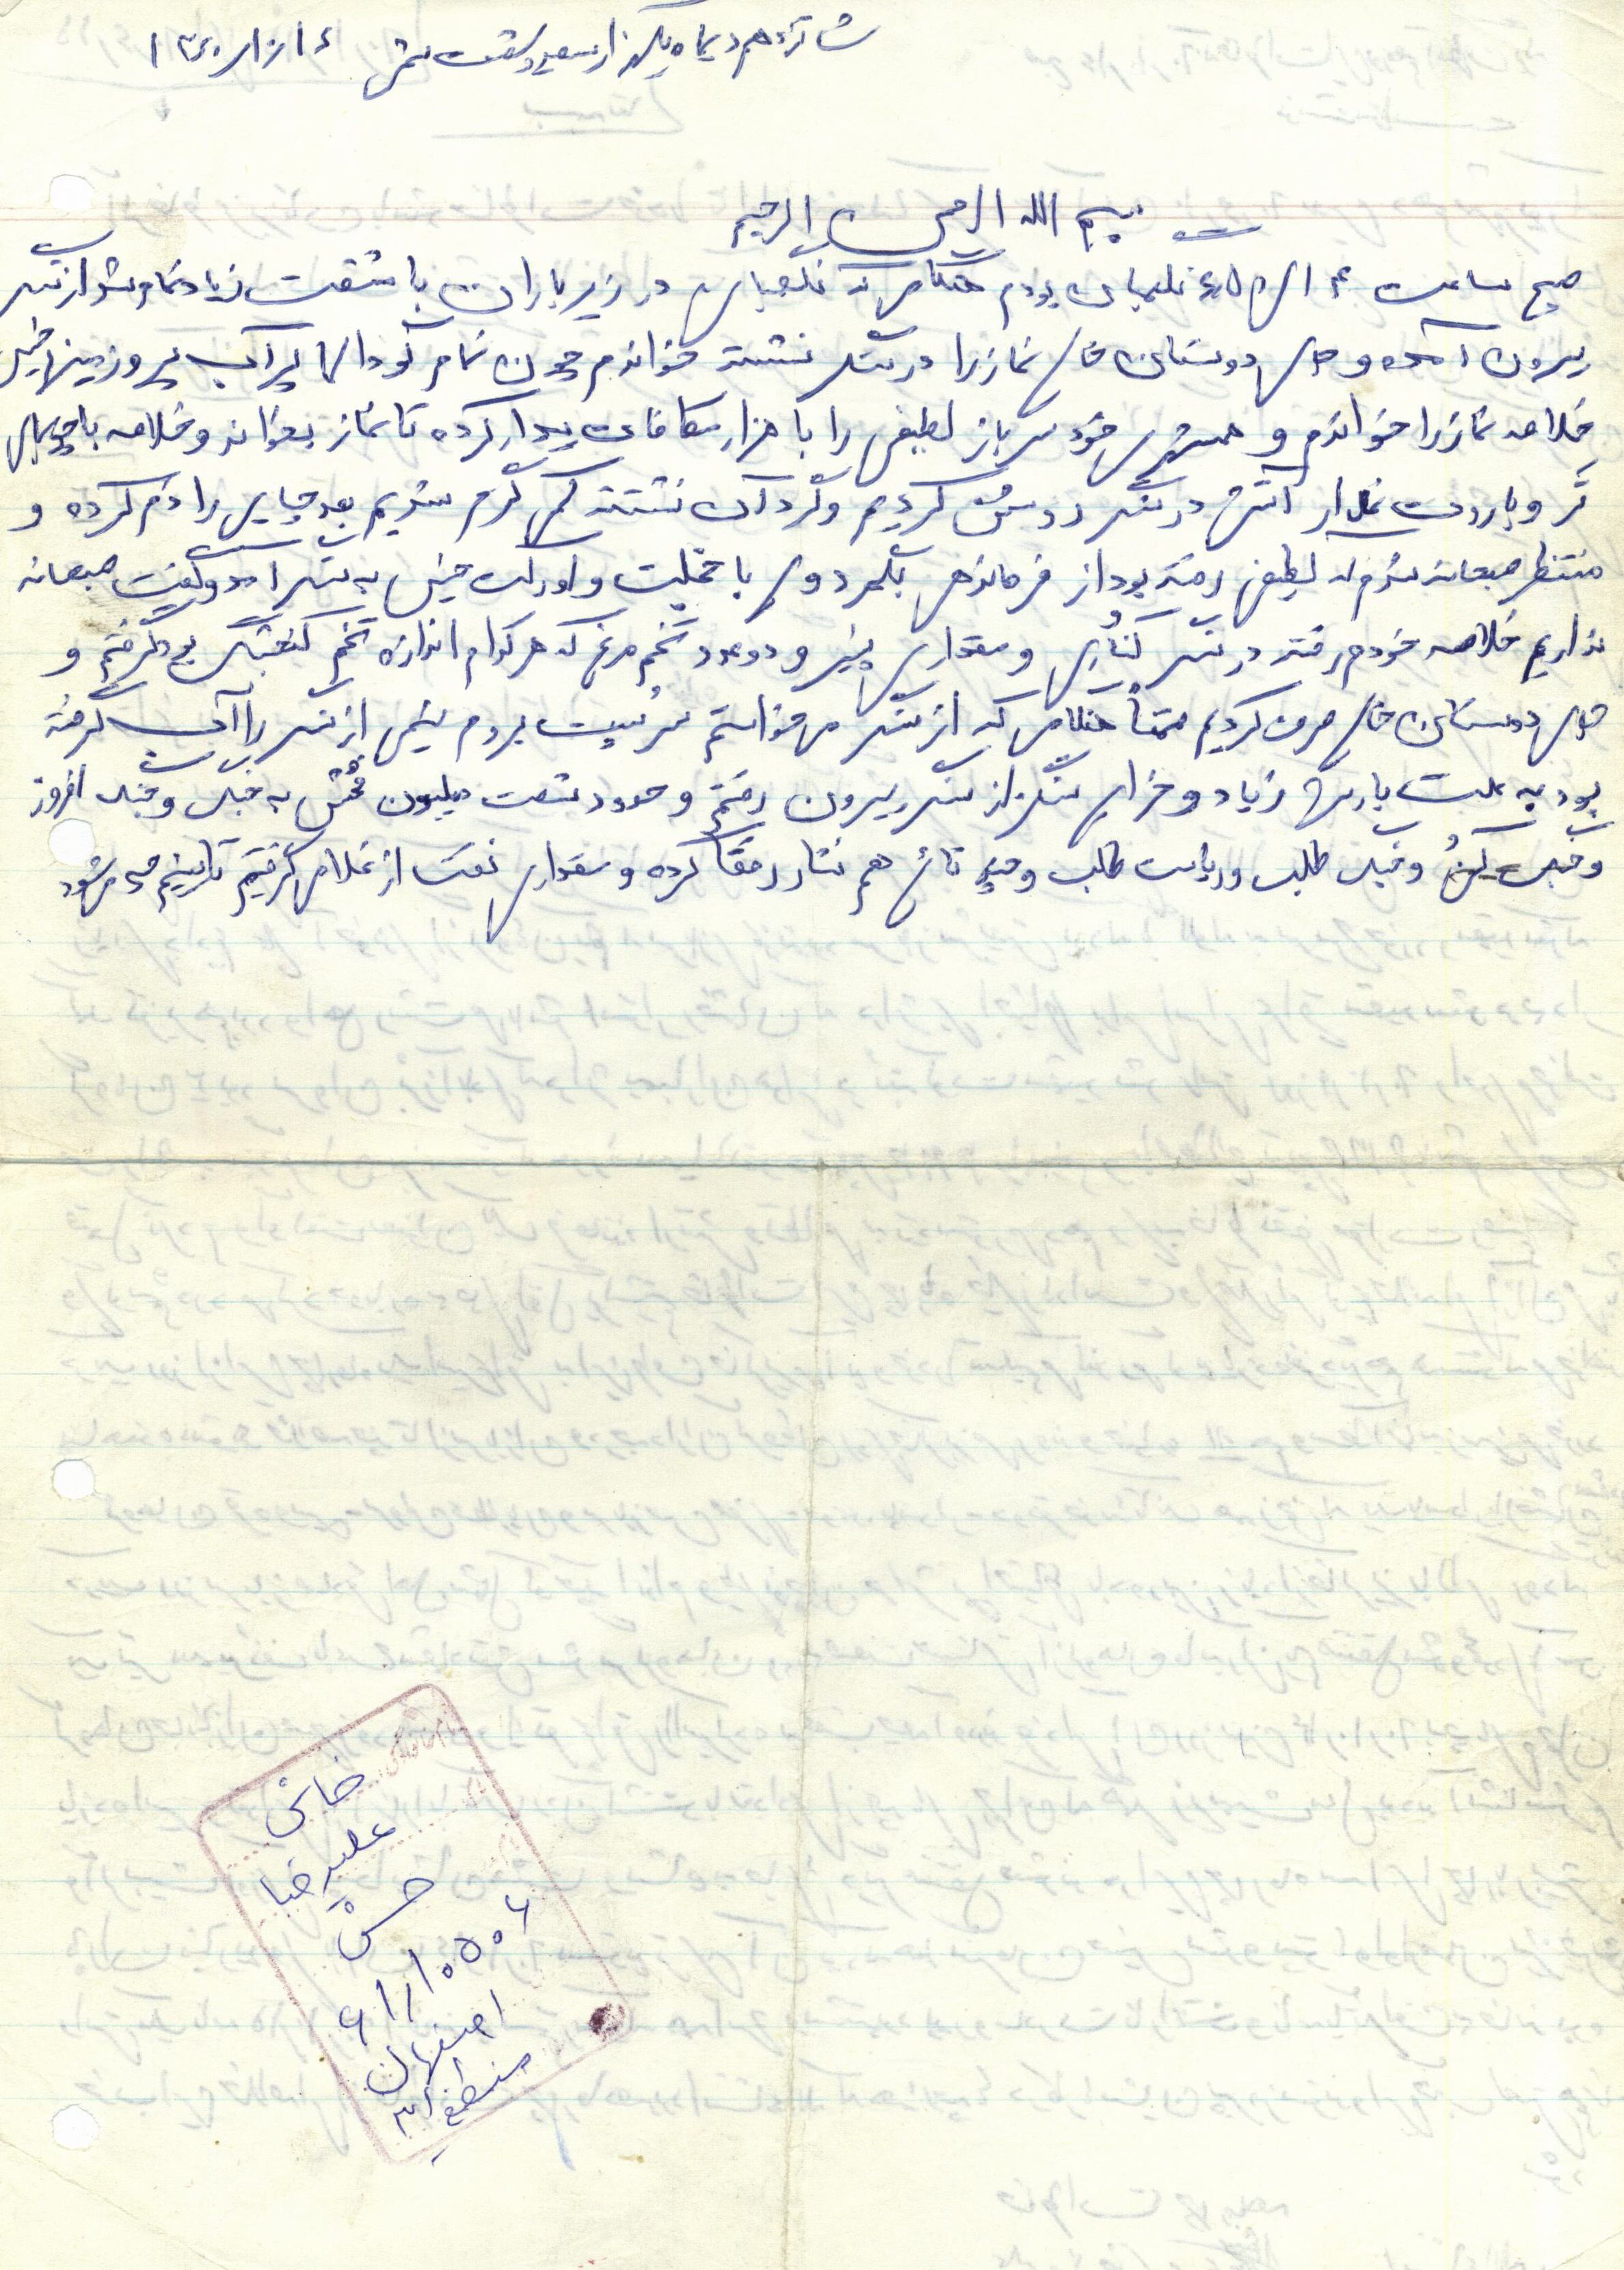 شانزدهم دیماه یکهزار سیصد و شصت شمسی ۱۶/۱۰/۱۳۶۰
بسم الله الرحمن الرحیم
صبح ساعت ۴ الی ۶/۵ نگهبان بودم هنگام نگهبانی در زیر باران با مشقت زیاد تمام شد از سنگر
بیرون آمده و جای دوستان خالی نماز را در سنگر نشسته خواندم چون تمام گودالها پر آب بود و زمینها خیس
خلاصه نماز را خواندم و همسنگر خود سرباز لطیفی را با هزار مکافات بیدار کرده تا نماز بخواند و خلاصه با چوبهای
تر و باروت آتش در سنگر روشن کردیم و گرد آن نشسته کمی گرم شدیم بعد چایی را دم کرده و
منتظر صبحانه شدم که لطیفی رفته بود از فرماندهی بگیرد ولی با خجلت و اورکت خیس به سنگر آمد و گفت صبحانه
نداریم خلاصه خودم رفته در سنگر و مقداری پنیر و دو عدد تخم مرغ که هر کدام اندازه تخم گنجشک بود گرفتم و
جای دوستان خالی صرف کردیم ضمناً هنگامی که از سنگر می خواستم سر پست بروم نیمی از سنگر را آب گرفته
بود به علت بارش زیاد و خرابی سنگر از سنگر بیرون رفتم و حدود شصت میلیون فحش به جنگ و جنگ افروز
و جنگ کن و جنگ طلب و ریاست طلب و چند تائی هم نثار رفقا کرده و مقداری نفت از غلامی گرفتیم تا ببینیم چه میشود
خانی
علیرضا
حسن
۶۱/۱۰۵۰۶
اصفهان
منطقه ۳